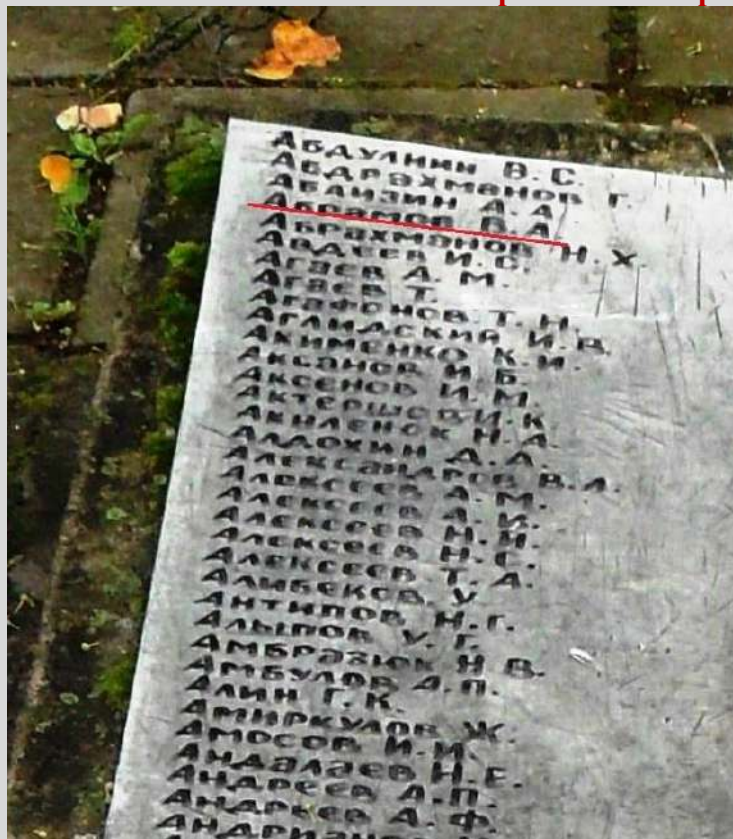 АБДУЛИИН В.С.
АБДРАХМАНОВ Г.
АБАИЗИН А.А.
АБРАМОВ В.А.
АБРАХМАНОВ Н.Х.
АВДЕЕВ И.С.
АГАЕВ А.М.
АГАЕВ Т.
АГАФОНОВ Т.Н.
И.В.
АКИМЕНКО К.И.
АКСАНОВ И.Б.
АКСЕНОВ И.М.
АКТЕРШЕВ И.К.
АКИЛЕНОК Н.А.
АЛДОХИН А.А.
АЛЕКСАНДРОВ В.А.
АЛЕКСЕЕВ А.М.
АЛЕКСЕЕВ А.И.
АЛЕКСЕЕВ Н.Н.
АЛЕКСЕЕВ Н.С.
АЛЕКСЕЕВ Т.А.
АЛИБЕКОВ У.
АНТИПОВ Н.Г.
АЛЫПОВ У.Г.
АМБРАЗЮК Н.В.
АМБУЛОВ А.П.
АЛИН Г.К.
АМИРКУЛОВ Ж.
АМОСОВ И.И.
АНДАЛАЕВ Н.Е.
АНДРЕЕВ А.П.
АНДРЬЕВ А.Ф.